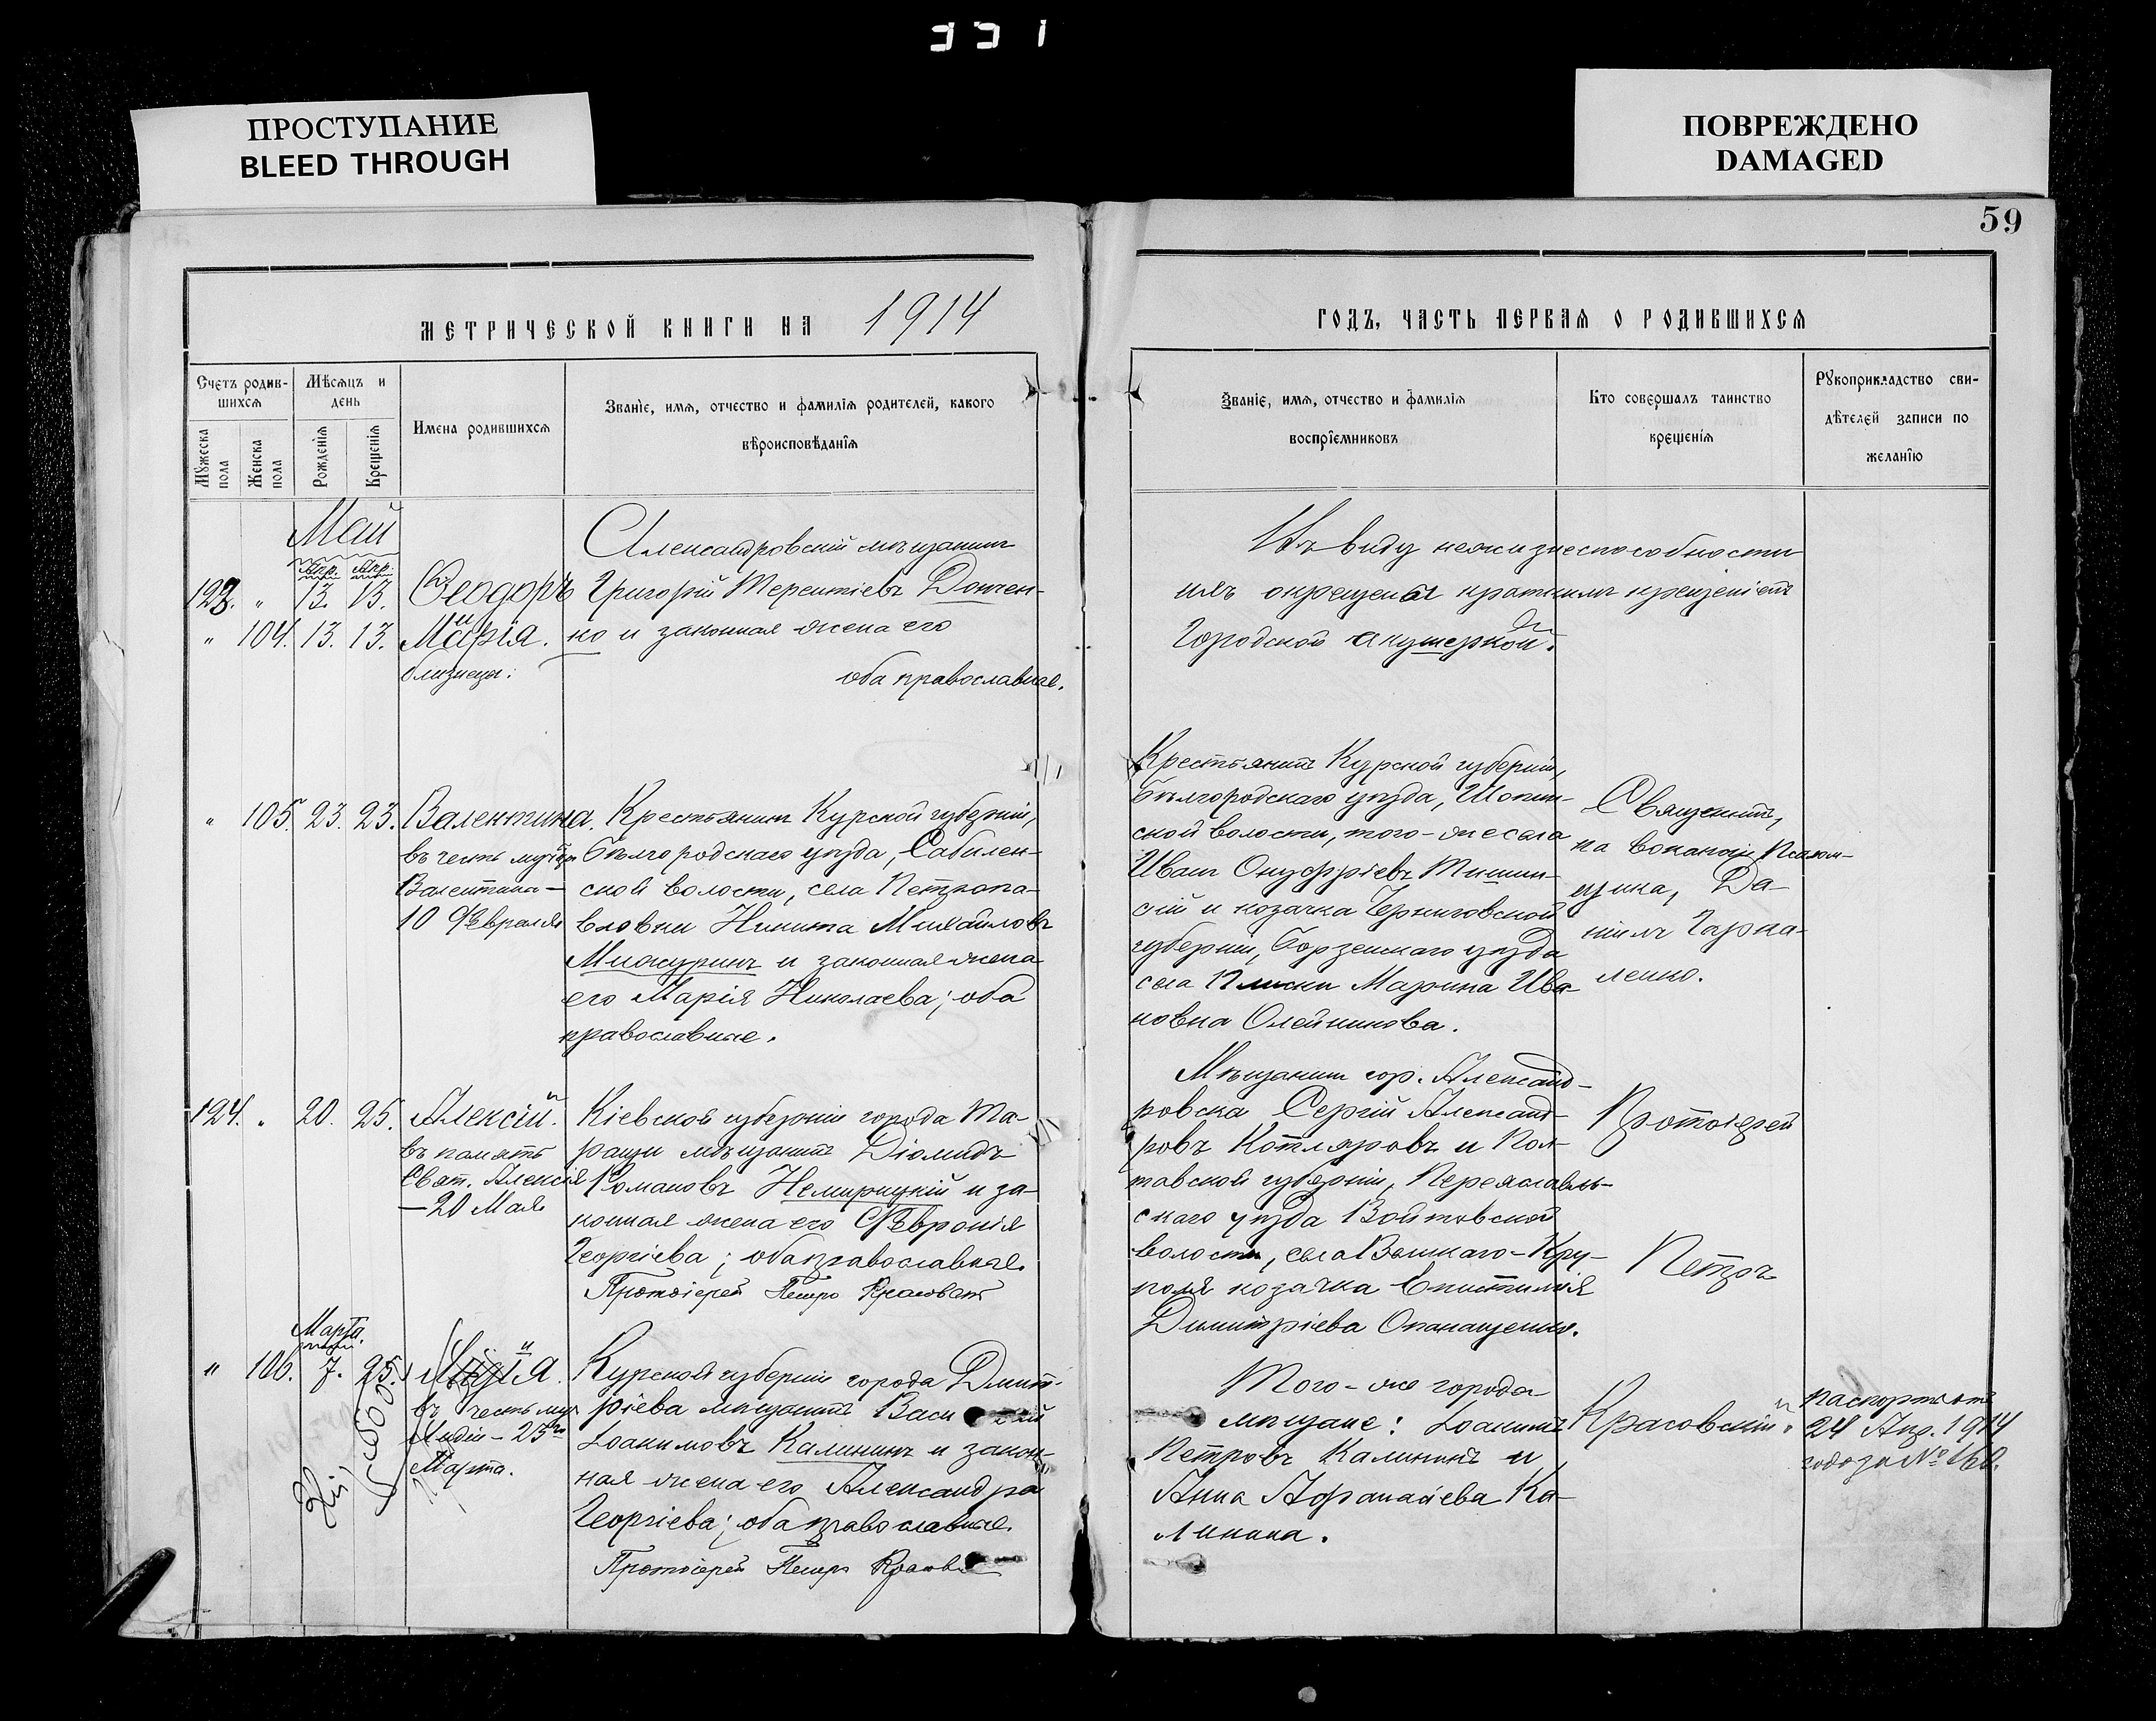 331
ПРОСТУПАНИЕ
BLEED THROUGH
ПОВРЕЖДЕНО
DAMAGED
59
МЕТРИЧЕСКОЙ КНИГИ НА 1914
ГОДЪ, ЧАСТЬ ПЕРВАЯ О РОДИВШИХСЯ
Счетъ родив-
шихся
Мужеска
пола
Женска
пола
Мѣсяцъ и
день
Рожденія
Крещенія
Имена родившихся
Званіе, имя, отчество и фамилія родителей, какого
вѣроисповѣданія
Званіе, имя, отчество и фамилія
воспріемниковъ
Кто совершалъ таинство
крещенія
Рукоприкладство сви-
дѣтелей записи по
желанію
Май
Апр. Апр.
123. " 13. 13. Ѳеодоръ
и
" 104. 13. 13. Марія.
близнецы.
Александровскій мѣщанинъ
Григорій Терентіевъ
но и законная жена его
оба православные.
Въ виду нежизнеспособности
ихъ окрещены краткимъ крещеніемъ
Городской акушеркой.
" 105. 23. 23. Валентина.
въ честь муч.
Валентина —
10 Февраля
Крестьянинъ Курской губерніи,
Бѣлгородскаго уѣзда, Сабынин-
ской волости, села Петропа-
вловки Никита Михайловъ
и законная жена
его Марія Николаева; оба
православные.
Крестьянинъ Курской губерніи,
Бѣлгородскаго уѣзда, Шопин-
ской волости, того-же села
Иванъ Онуфріевъ
и козачка Черниговской
губерніи, Борзенскаго уѣзда
села Плиски Марина Ива-
новна Олейникова.
Священникъ,
на вокансіи Псалом-
щика, Да-
ніилъ
ленко.
124. " 20. 25. Алексій.
въ память
Свят. Алексія
— 20 Мая
Кіевской губерніи города Та-
ращи мѣщанинъ Діомидъ
Романовъ Немирицкій и за-
конная жена его Февронія
Георгіева; оба православные.
Протоіерей Петръ Красовскій
Мѣщанинъ гор. Александ-
ровска Сергій Александ-
ровъ Котляровъ и Пол-
тавской губерніи, Переяславль-
скаго уѣзда Войтовской
волости, села Вышкаго-Кру-
поля козачка Епистимія
Димитріева Опанащенко.
Протоіерей
Петръ
Марта.
" 106. 7. 25. Лидія.
въ честь муч.
Лидіи — 23го
Марта.
Курской губерніи города Дмит-
ріева мѣщанинъ Василій
Іоакимовъ Калининъ и закон-
ная жена его Александра
Георгіева; оба православные.
Протоіерей Петръ Красовскій
Того-же города
мѣщане: Іоакимъ
Петровъ Калининъ и
Анна Афанасіева Ка-
линина.
Красовскій.
паспортъ отъ
24 Апр. 1914
года за № 160.